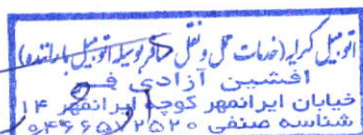 اتومبیل کرایه (خدمات حمل و نقل مسافر بوسیله اتومبیل با راننده)
افشین آزادی فر
خیابان ایرانمهر کوچه ایرانمهر ۱۴
شناسه صنفی ۰۴۶۶۵۷۲۵۲۰